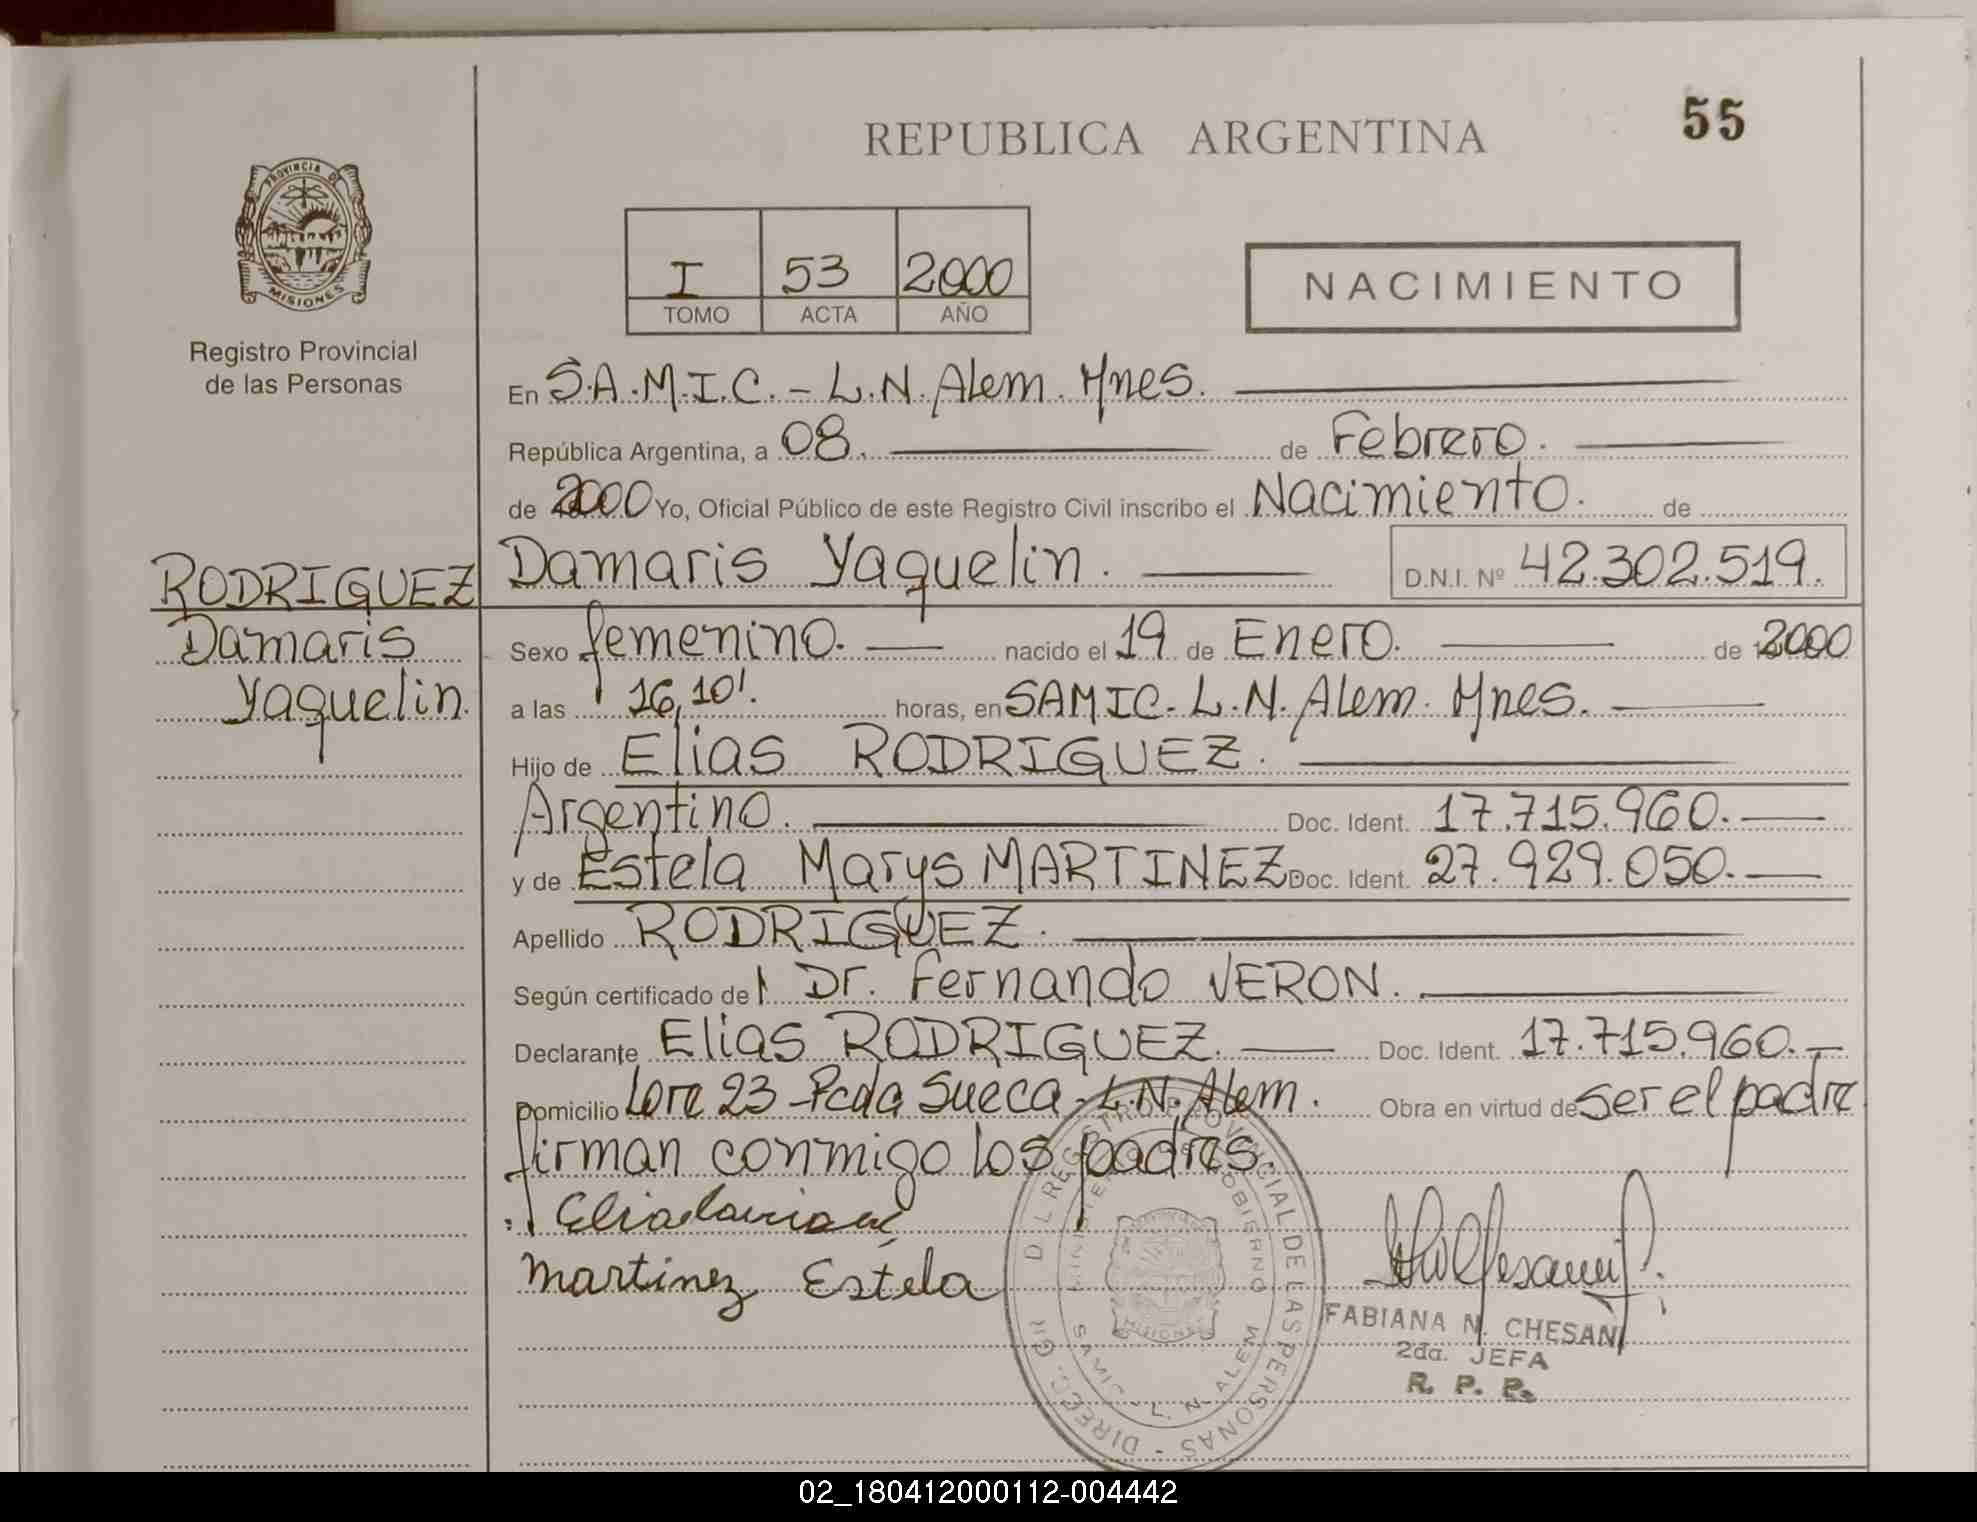 55
REPUBLICA ARGENTINA
PROVINCIA DE
MISIONES
Registro Provincial
de las Personas
I 53 2000
TOMO ACTA AÑO
NACIMIENTO
En S.A.M.I.C. - L.N. Alem. Mnes.
República Argentina, a 08. de Febrero.
de 2000 Yo, Oficial Público de este Registro Civil inscribo el Nacimiento. de
RODRIGUEZ
Damaris
Yaquelin.
Damaris Yaquelin. D.N.I. Nº 42.302.519.
Sexo femenino. nacido el 19 de Enero. de 2000
a las 16,10'. horas, en SAMIC. L.N. Alem. Mnes.
Hijo de Elias RODRIGUEZ.
Argentino. Doc. Ident. 17.715.960.
y de Estela Marys MARTINEZ Doc. Ident. 27.929.050.
Apellido RODRIGUEZ.
Según certificado del Dr. Fernando VERON.
Declarante Elias RODRIGUEZ. Doc. Ident. 17.715.960.
Domicilio Lote 23 - Pcda Sueca - L.N. Alem. Obra en virtud de ser el padre
firman conmigo los padres.
Martinez Estela
DIREC. GRAL. DEL REGISTRO PROVINCIAL DE LAS PERSONAS
MINISTERIO DE GOBIERNO
MISIONES
SAMIC - L. N. ALEM
FABIANA N. CHESANI
2da. JEFA
R. P. P.
02_180412000112-004442